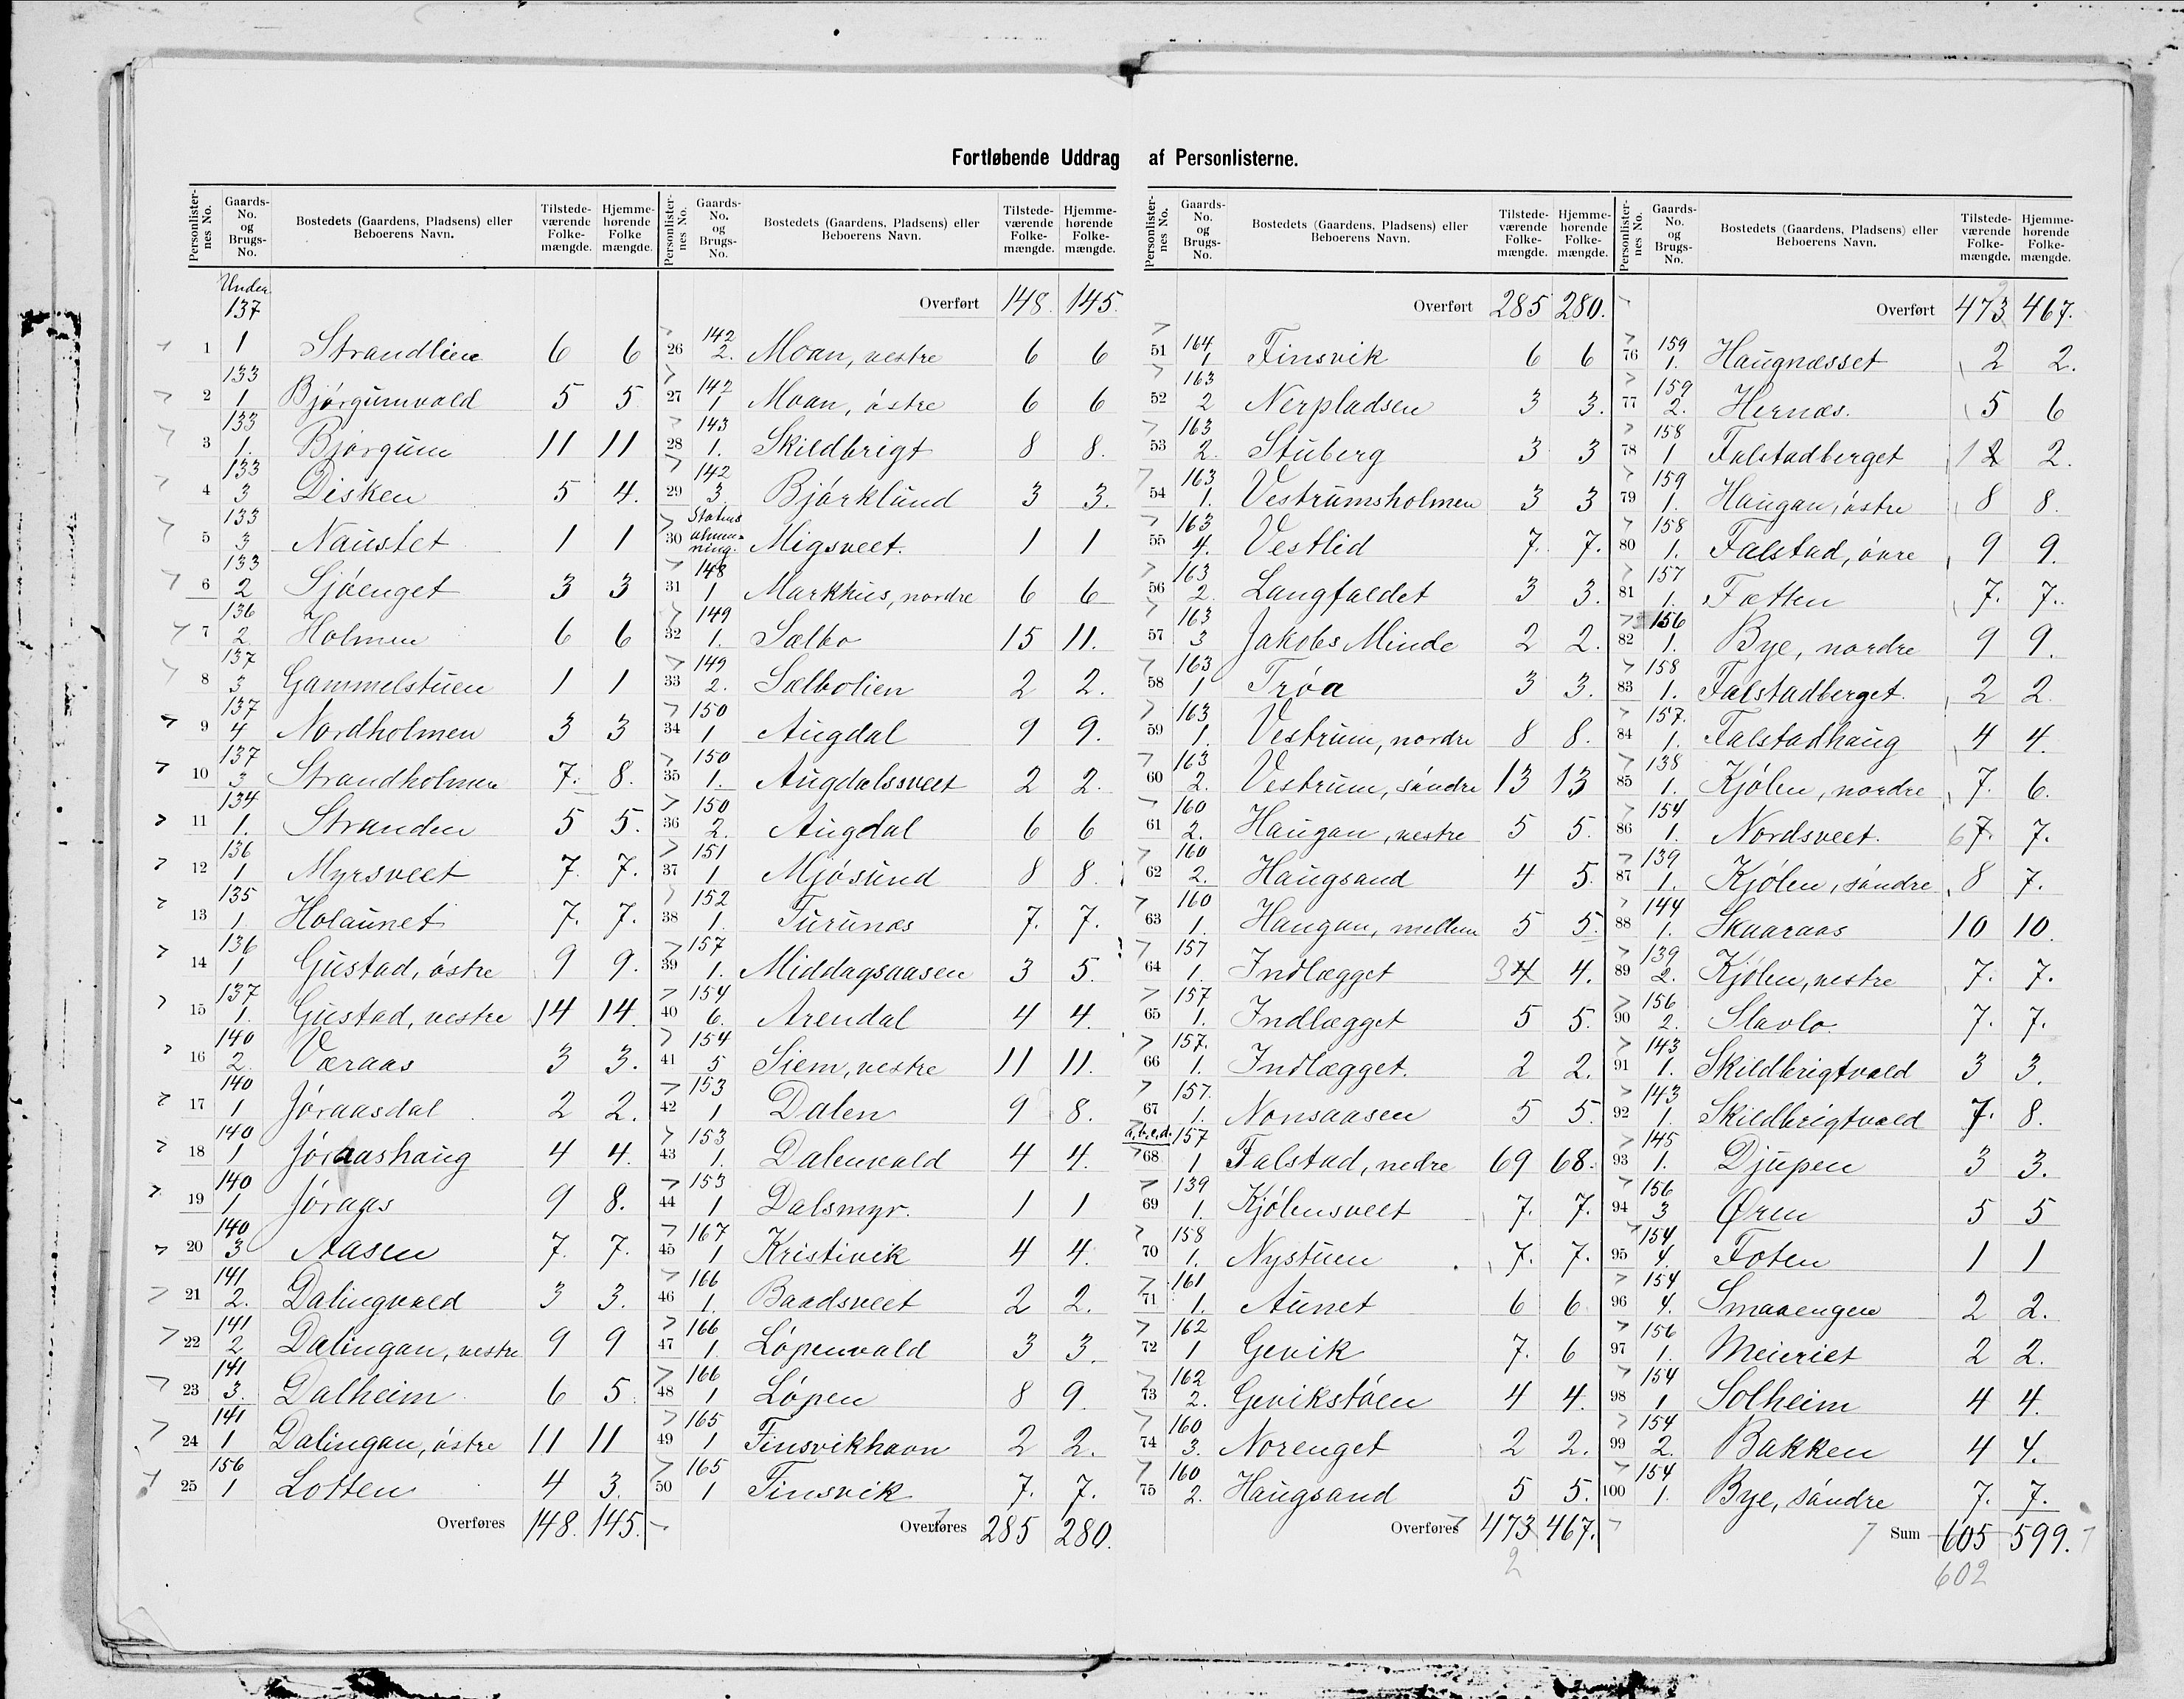 Fortløbende Uddrag af Personlisterne.
Personlister-nes No. Gaards-No. og Brugs-No. Bostedets (Gaardens, Pladsens) eller Beboerens Navn. Tilstede-værende Folke-mængde. Hjemme-hørende Folke mængde.
Under
137
1 1 Strandlien 6 6
2 133 1 Bjørgumvald 5 5
3 133 1. Bjørgum 11 11
4 133 3 Disken 5 4.
5 133 3 Naustet 1 1
6 133 2 Sjøenget 3 3
7 136 2. Holmen 6 6
8 137 3 Gammelstuen 1 1
9 137 4 Nordholmen 3 3
10 137 3 Strandholmen 7. 8.
11 134 1. Stranden 5 5.
12 136 1 Myrsveet 7. 7.
13 135 1 Holaunet 7. 7.
14 136 1 Gustad, østre 9 9.
15 137 1. Gustad, vestre 14 14
16 140 2. Væraas 3 3.
17 140 1 Jøraasdal 2 2.
18 140 1 Jøraashaug 4 4.
19 140 1 Jøraas 9 8.
20 140 3 Aasen 7. 7.
21 141 2. Dalingvald 3 3.
22 141 2 Dalingan, vestre 9 9
23 141 3. Dalheim 6 5
24 141 1 Dalingan, østre 11 11
25 156 1 Lotten 4 3.
Overføres 148. 145.
Personlister-nes No. Gaards-No. og Brugs-No. Bostedets (Gaardens, Pladsens) eller Beboerens Navn. Tilstede-værende Folke-mængde. Hjemme-hørende Folke-mængde.
Overført 148. 145.
26 142 2. Moan, vestre 6 6
27 142 1 Moan, østre 6 6
28 143 1. Skildbrigt 8 8.
29 142 3 Bjørklund 3 3.
30 Statens almen-ning. Migsveet. 1 1
31 148 1 Markhus, nordre 6 6
32 149 1. Salbo 15 11.
33 149 2. Salbolien 2 2.
34 150 1 Augdal 9 9.
35 150 1. Augdalssveet 2 2.
36 150 2. Augdal 6 6
37 151 1 Mjøsund 8 8.
38 152 1. Furunes 7. 7.
39 157 1. Middagsaasen 3 5.
40 154 6. Arendal 4 4.
41 154 5 Siem, vestre 11 11.
42 153 1 Dalen 9 8.
43 153 1. Dalenvald 4 4.
44 153 1 Dalsmyr. 1 1
45 167 1 Kristivik 4 4.
46 166 1. Baadsveet 2 2.
47 166 1. Løpenvald 3 3.
48 166 1 Løpen 8 9.
49 165 1 Finsvikhavn 2 2.
50 165 1 Finsvik 7. 7.
Overføres 285 280.
Personlister-nes No. Gaards-No. og Brugs-No. Bostedets (Gaardens, Pladsens) eller Beboerens Navn. Tilstede-værende Folke-mængde. Hjemme-hørende Folke-mængde.
Overført 285 280.
51 164 1. Finsvik 6 6
52 163 2 Nerpladsen 3 3.
53 163 2. Stuberg 3 3
54 163 1. Vestrumsholmen 3 3
55 163 4. Vestlid 7. 7.
56 163 2. Langfaldet 3 3.
57 163 3 Jakobs Minde 2 2.
58 163 1 Trøa 3 3.
59 163 1. Vestrum, nordre 8 8.
60 163 2. Vestrum, søndre 13 13
61 160 2. Haugan, vestre 5 5.
62 160 2. Haugsand 4 5.
63 160 1. Haugan, mellem 5 5.
64 157 1. Indlægget 3 4 4.
65 157 1. Indlægget 5 5.
66 157. 1. Indlægget. 2 2.
67 157. 1. Nonsaasen 5 5
a.b.c.d. 68 157 1 Falstad, nedre 69 68.
69 139 1. Kjølensveet 7. 7.
70 158 1. Nystuen 7. 7.
71 161 1. Aunet 6 6
72 162 1 Gevik 7. 6
73 162 2. Gevikstøen 4 4.
74 160 3. Norenget 2 2.
75 160 2. Haugsand 5 5.
Overføres 473 467.
2
Personlister-nes No. Gaards-No. og Brugs-No. Bostedets (Gaardens, Pladsens) eller Beboerens Navn. Tilstede-værende Folke-mængde. Hjemme-hørende Folke-mængde.
2
Overført 473 467.
76 159 1. Haugnæsset 2 2.
77 159 2. Hernæs. 5 6
78 158 1 Falstadberget 1 2 2.
79 159 1. Haugan, østre 8 8.
80 158 1. Falstad, øvre 9 9.
81 157 1. Fætten 7. 7.
82 156 1. Bye, nordre 9 9.
83 158 1. Falstadberget. 2 2.
84 157. 1. Falstadhaug 4 4.
85 138 1. Kjølen, nordre 7. 6.
86 154 1. Nordsveet. 6 7. 7.
87 139 1. Kjølen, søndre 8 7.
88 144 1. Skaaraas 10 10.
89 139 2. Kjølen, vestre 7. 7.
90 156 2. Slavlo. 7. 7.
91 143 1. Skildbrigtvald 3 3.
92 143 1. Skildbrigtvald 7. 8.
93 145 1. Djupen 3 3.
94 156 3 Øren 5 5
95 154 4. Foten 1 1
96 154 4. Smaaengen 2 2.
97 156 1. Meieriet 2 2.
98 154 1 Solheim 4 4.
99 154 2. Bakken 4 4.
100 154 1. Bye, søndre 7. 7.
Sum 605 599.
602